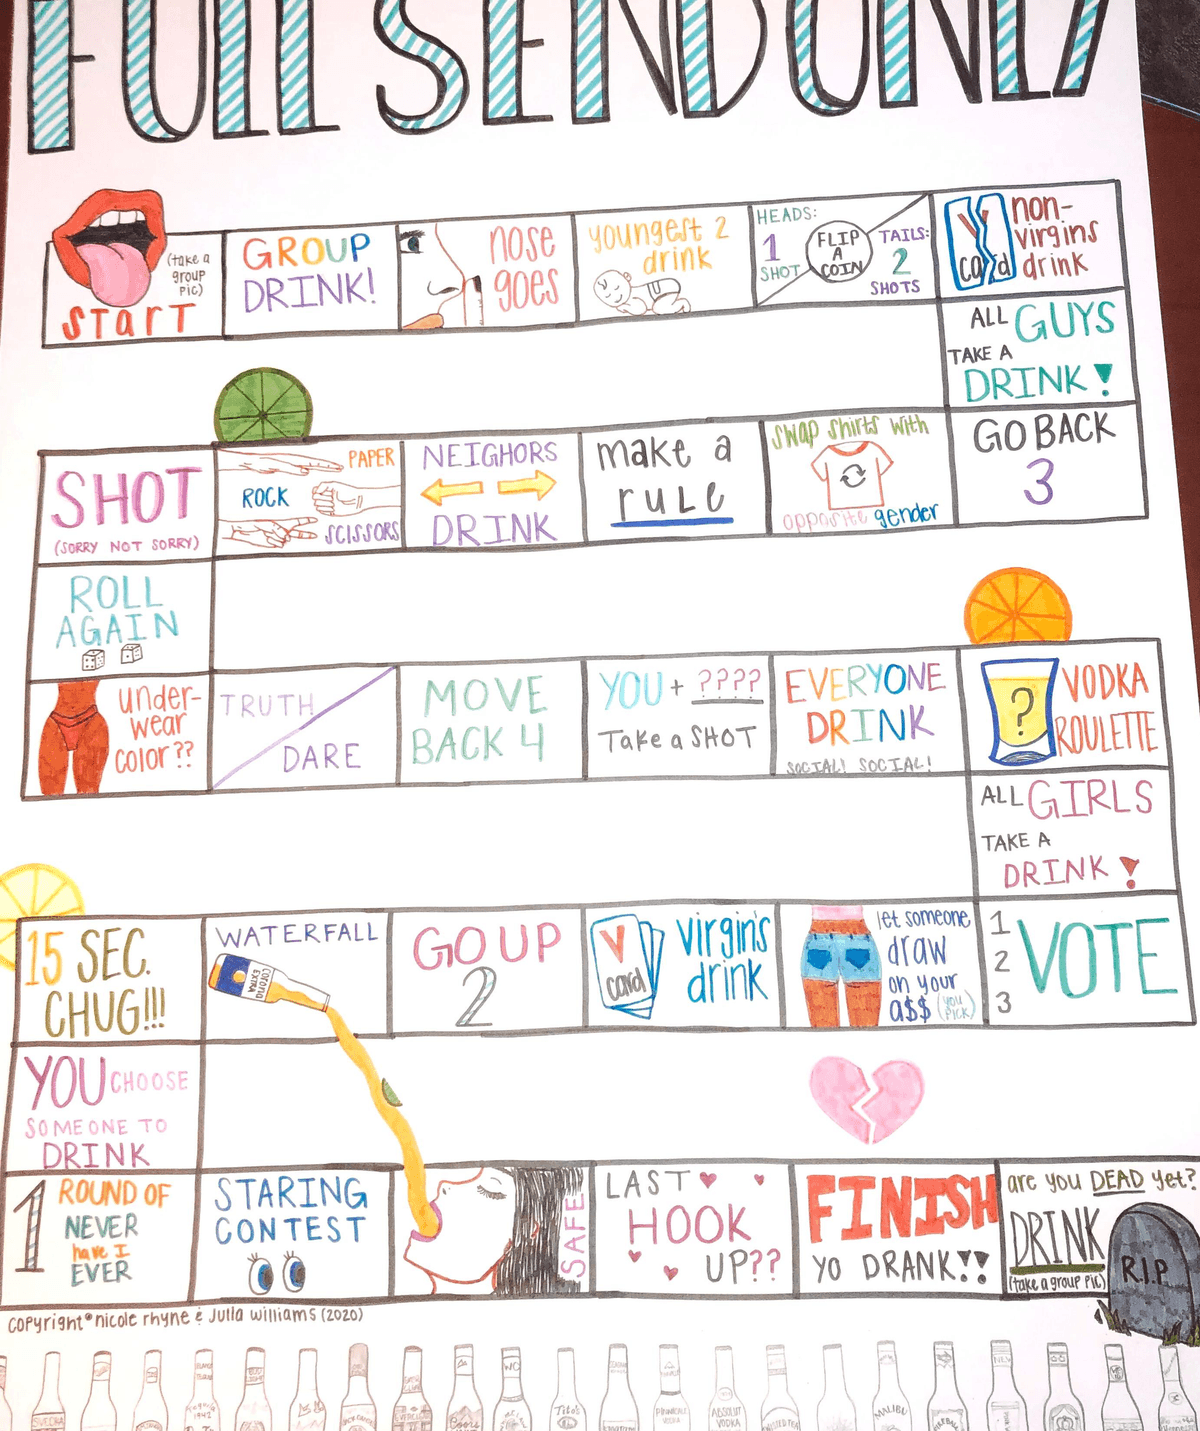 FULL SEND ONLY
(take a
group
pic)
START
GROUP
DRINK!
nose
goes
youngest 2
drink
HEADS:
1
SHOT
FLIP
A
COIN
TAILS:
2
SHOTS
V
card
non-
virgins
drink
ALL GUYS
TAKE A
DRINK!
GO BACK
3
swap shirts with
opposite gender
make a
rule
NEIGHORS
DRINK
PAPER
ROCK
SCISSORS
SHOT
(SORRY NOT SORRY)
ROLL
AGAIN
under-
wear
color??
TRUTH
DARE
MOVE
BACK 4
YOU + ????
Take a SHOT
EVERYONE
DRINK
SOCIAL! SOCIAL!
?
VODKA
ROULETTE
ALL GIRLS
TAKE A
DRINK!
1
2
3
VOTE
let someone
draw
on your
a$$ (you
pick)
V
card
virgin's
drink
GO UP
2
WATERFALL
corona
EXTRA
15 SEC.
CHUG!!!
YOU CHOOSE
SOMEONE TO
DRINK
1 ROUND OF
NEVER
have I
EVER
STARING
CONTEST
SAFE
LAST
HOOK
UP??
FINISH
YO DRANK!!
are you DEAD yet?
DRINK
(take a group pic)
R.I.P
copyright® nicole rhyne & Julia williams (2020)
SVEDKA
1942
Coors
WC
Tito's
PINNACLE
VODKA
ABSOLUT
VODKA
MALIBU